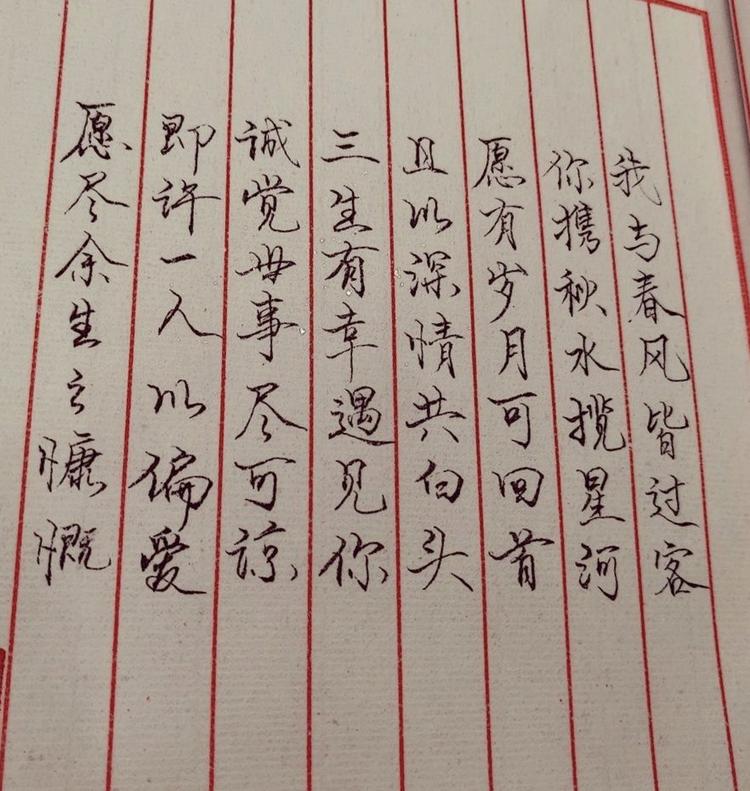 我与春风皆过客
你携秋水揽星河
愿有岁月可回首
且以深情共白头
三生有幸遇见你
诚觉世事尽可谅
即许一人以偏爱
愿尽余生之慷慨